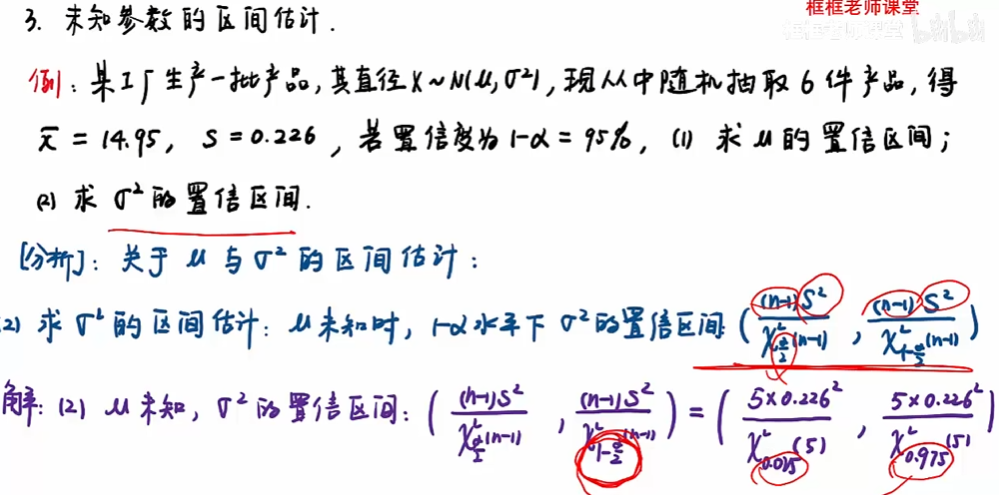 框框老师课堂
框框老师课堂 bilibili
3. 未知参数的区间估计.
例: 某工厂生产一批产品, 其直径 X~N(μ, σ²), 现从中随机抽取 6 件产品, 得
x̄ = 14.95, S = 0.226, 若置信度为 1-α = 95%, (1) 求 μ 的置信区间;
(2) 求 σ² 的置信区间.
[分析]: 关于 μ 与 σ² 的区间估计:
(2) 求 σ² 的区间估计: μ 未知时, 1-α 水平下 σ² 的置信区间 ( (n-1)S² / χ²_{α/2}(n-1) , (n-1)S² / χ²_{1-α/2}(n-1) )
解: (2) μ 未知, σ² 的置信区间: ( (n-1)S² / χ²_{α/2}(n-1) , (n-1)S² / χ²_{1-α/2}(n-1) ) = ( 5×0.226² / χ²_{0.025}(5) , 5×0.226² / χ²_{0.975}(5) )